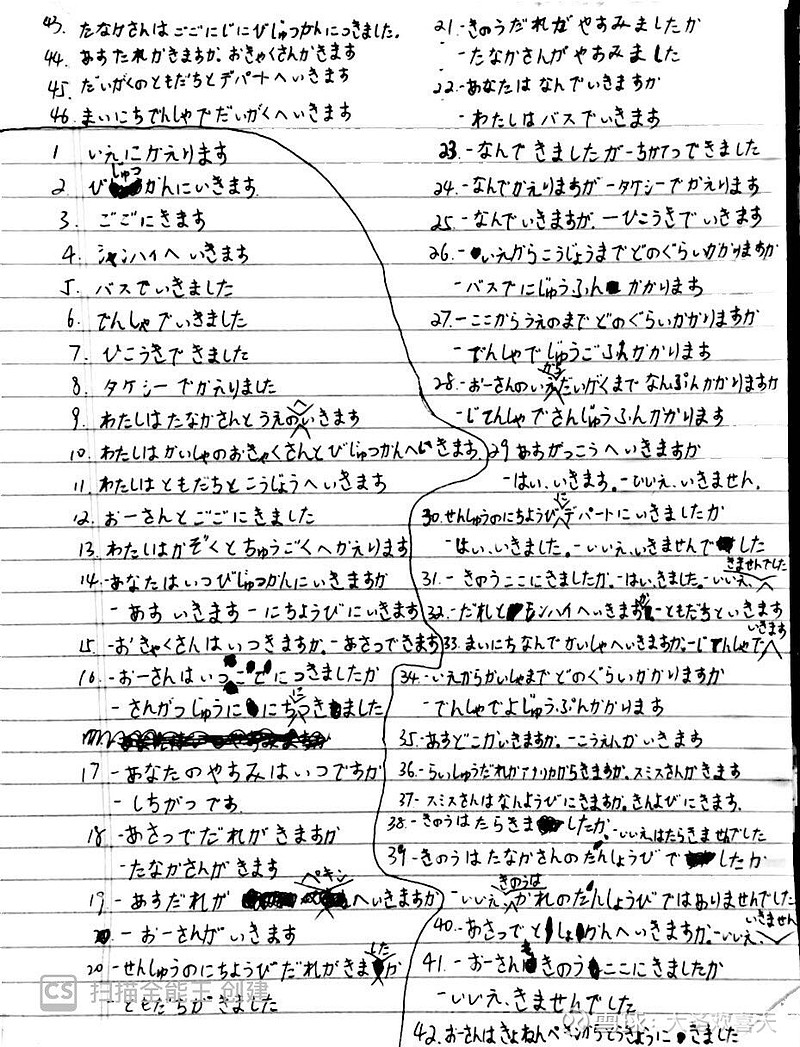 43. たなかさんはごごにじにびじゅつかんにつきました.
44. あすだれがきますか. おきゃくさんがきます
45. だいがくのともだちとデパートへいきます
46. まいにちでんしゃでだいがくへいきます
1 いえにかえります
2 びじゅつかんにいきます.
3. ごごにきます
4. シャンハイへいきます
5. バスでいきました
6. でんしゃでいきました
7. ひこうきできました
8. タケシーでかえりました
9. わたしはたなかさんとうえのへいきます
10. わたしはかいしゃのおきゃくさんとびじゅつかんへいきます.
11. わたしはともだちとこうじょうへいきます
12. おーさんとごごにきました
13. わたしはかぞくとちゅうごくへかえります
14. -あなたはいつびじゅつかんにいきますか
-あすいきます -にちようびにいきます
15 -おきゃくさんはいつきますか. -あさってきます
16. -おーさんはいつここにつきましたか
-さんがつじゅうににちにつきました
17 -あなたのやすみはいつですか
-しちがつです.
18 -あさってだれがきますか
-たなかさんがきます
19. -あすだれがペキンへいきますか
-おーさんがいきます
20 -せんしゅうのにちようびだれがきましたか
-ともだちがきました
21. -きのうだれがやすみましたか
-たなかさんがやすみました
22. -あなたはなんでいきますか
-わたしはバスでいきます
23. -なんできましたか -ちかてつできました
24. -なんでかえりますか -タケシーでかえります
25. -なんでいきますか. -ひこうきでいきます
26. -いえからこうじょうまでどのぐらいかかりますか
-バスでにじゅうふんかかります
27. -ここからうえのまでどのぐらいかかりますか
-でんしゃでじゅうごふんかかります
28. -おーさんのいえからだいがくまでなんぷんかかりますか
-じてんしゃでさんじゅうふんかかります
29 あすがっこうへいきますか
-はい、いきます。-いいえ、いきません.
30. せんしゅうのにちようびにデパートにいきましたか
-はい、いきました。-いいえ、いきませんでした
31. -きのうここにきましたか. -はい、きました. -いいえ、きませんでした
32. -だれとシャンハイへいきますか -ともだちといきます
33. まいにちなんでかいしゃへいきますか. -じてんしゃでいきます
34 -いえからかいしゃまでどのぐらいかかりますか
-でんしゃでよじゅうぷんかかります
35. -あすどこかいきますか. -こうえんかいきます
36. -らいしゅうだれがアメリカからきますか. スミスさんがきます
37 -スミスさんはなんようびにきますか. きんよびにきます.
38. -きのうはたらきましたか. -いいえはたらきませんでした
39 -きのうはたなかさんのたんしょうびでしたか
-いいえ、きのうはかれのたんしょうびではありませんでした
40. -あさってとしょかんへいきますか. -いいえ、いきません
41. -おーさんはきのうここにきましたか
-いいえ、きませんでした
42. おさんはきょねんペキンからとうきょうにきました
CS 扫描全能王 创建
雪球：大圣欢喜天